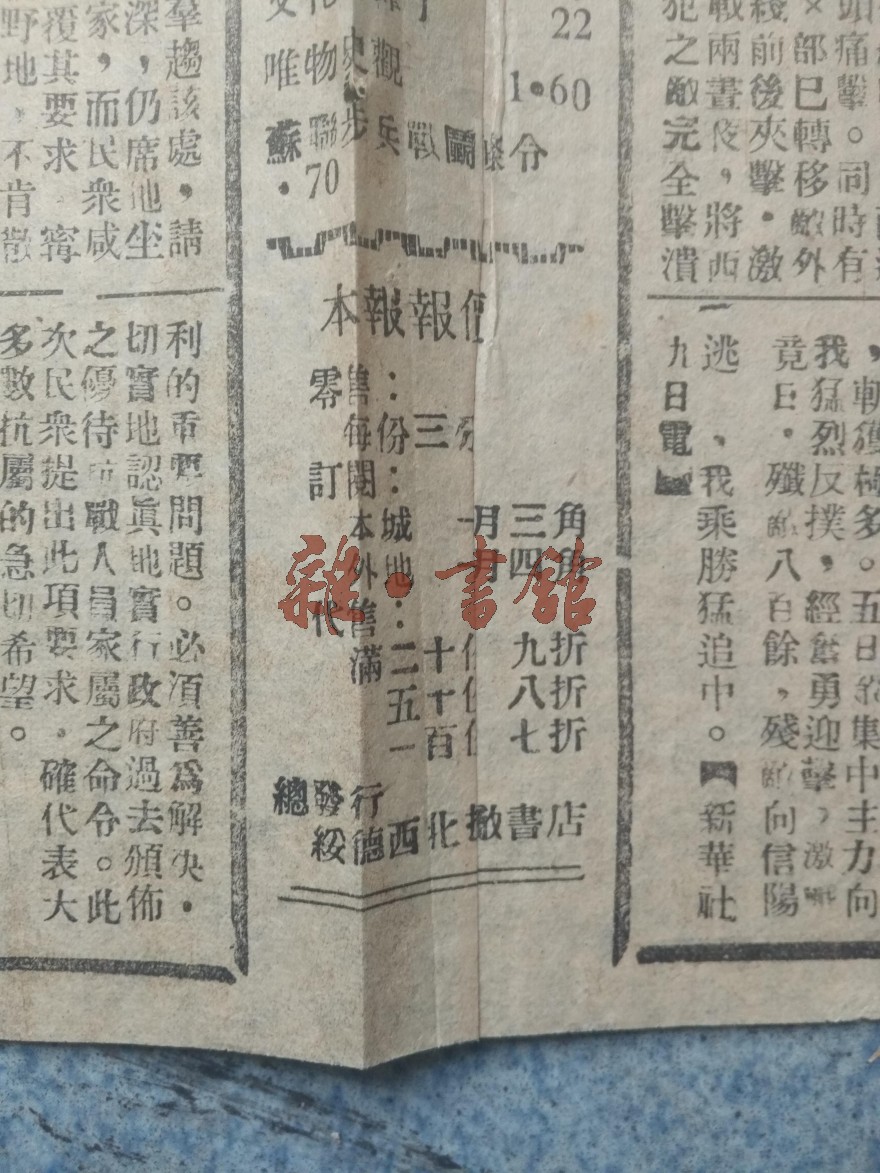 犯之敵完全擊潰
戰兩晝夜，將西
綫前後夾擊．激
×部已轉移敵外
頭痛擊。同時有
，斬獲極多。五日
集中主力向
我猛烈反撲，經奮勇迎擊，激戰
竟日．殲敵八百餘，殘敵向信陽
逃　，我乘勝猛追中。【新華社
九日電】
22
唯物史觀
1.60
蘇聯步兵戰鬭條令
．70
本報報價
零售：
每份三分
訂閱：
本城一月三角
外地　月四角
代售：
滿二十份九折
五十份八折
一百份七折
總發行
綏德西北抗敵書店
羣趨該處，請
深，仍席地坐
家，而民衆咸
覆其要求．寗
野地，不肯散
利的重要問題。必須善爲解決．
切實地認眞地實行政府過去頒佈
之優待抗戰人員家屬之命令。此
次民衆提出此項要求．確代表大
多數抗屬的急切希望。
雜·書館